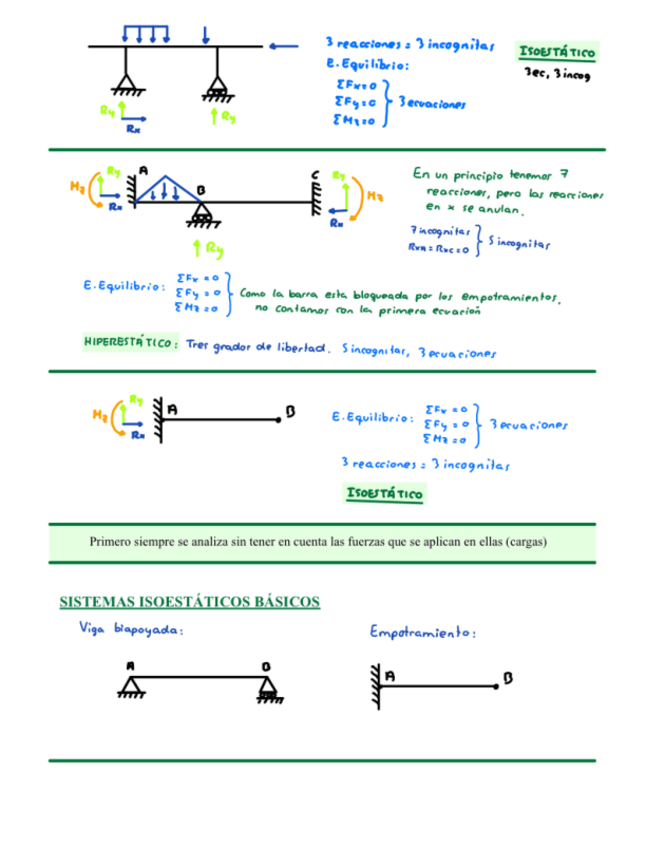 3 reacciones = 3 incognitas
ISOESTÁTICO
E. Equilibrio:
3 ec, 3 incog
ΣFx=0
ΣFy=0
3 ecuaciones
ΣMz=0
Ry
Rx
Ry
Mz
Ry
A
Rx
B
C
Ry
Mz
Rx
Ry
En un principio tenemos 7
reacciones, pero las reacciones
en x se anulan.
7 incognitas
RxA = RxC = 0
5 incognitas
E. Equilibrio:
ΣFx = 0
ΣFy = 0
ΣMz = 0
Como la barra esta bloqueada por los empotramientos,
no contamos con la primera ecuación
HIPERESTÁTICO: Tres grados de libertad. 5 incognitas, 3 ecuaciones
Mz
Ry
Rx
A
B
E. Equilibrio:
ΣFx = 0
ΣFy = 0
ΣMz = 0
3 ecuaciones
3 reacciones = 3 incognitas
ISOESTÁTICO
Primero siempre se analiza sin tener en cuenta las fuerzas que se aplican en ellas (cargas)
SISTEMAS ISOESTÁTICOS BÁSICOS
Viga biapoyada:
Empotramiento:
A
B
A
B